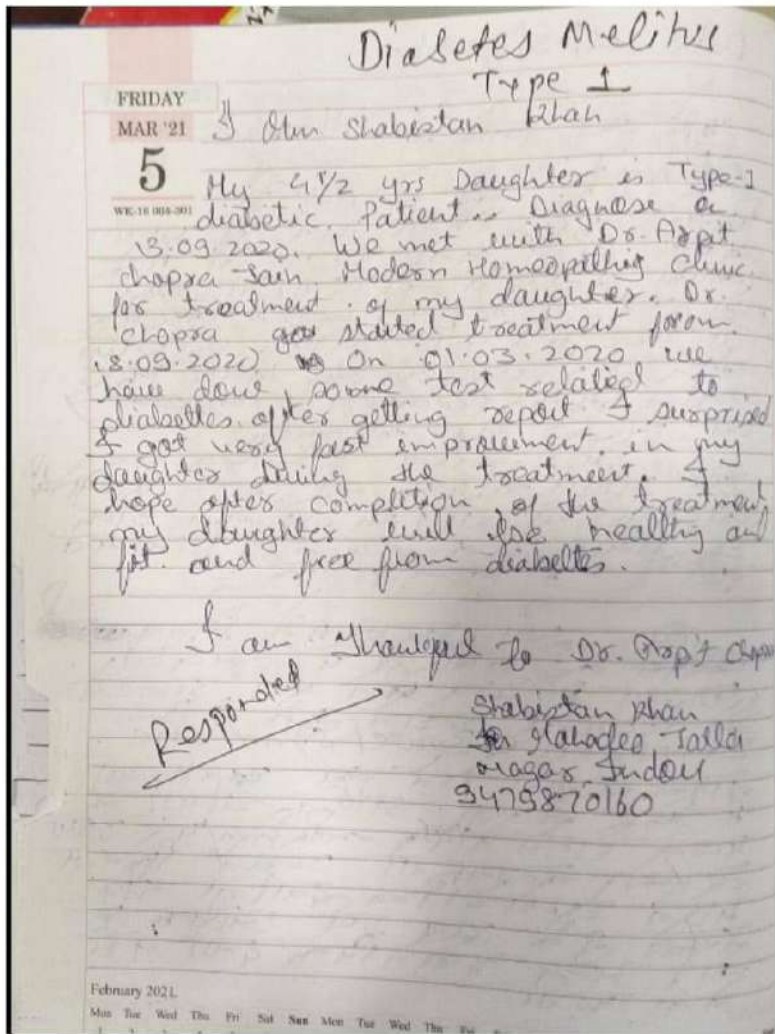 Diabetes Melitus
Type 1
FRIDAY
MAR '21
5
WK-10 064-301
I Am Shabistan Khan
My 4 1/2 yrs Daughter is Type-1
diabetic Patient. Diagnose
13.09.2020. We met with Dr. Arpit
chopra Jain Modern Homeopathic Clinic
for treatment of my daughter. Dr.
chopra started treatment from
18.09.2020 On 01.03.2020 we
have done some test related to
diabettes. after getting report I surprised
I got very fast improvement in my
daughter during the treatment. I
hope after completion of the treatment
my daughter will be healthy and
fit and free from diabettes.
I am Thankful to Dr. Arpit Chopra
Responded
Shabistan Khan
Nagar Indou
9479870160
February 2021.
Mon Tue Wed Thu Fri Sat Sun Mon Tue Wed Thu Fri